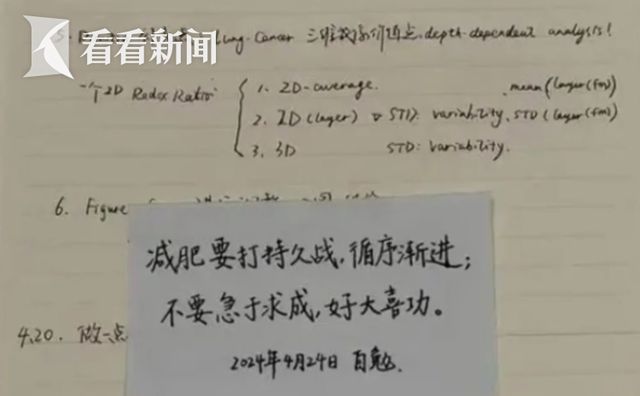 看看新闻
Lung-Cancer 三维数据的特点, depth-dependent analysis!
一个 2D Redox Ratio
1. 2D-average. mean(layer(fm))
2. 2D (layer) STD: variability. STD(layer(fm))
3. 3D STD: variability.
6. Figure
减肥要打持久战,循序渐进;
不要急于求成,好大喜功。
4.20. 做一点
2024年4月24日 自勉.